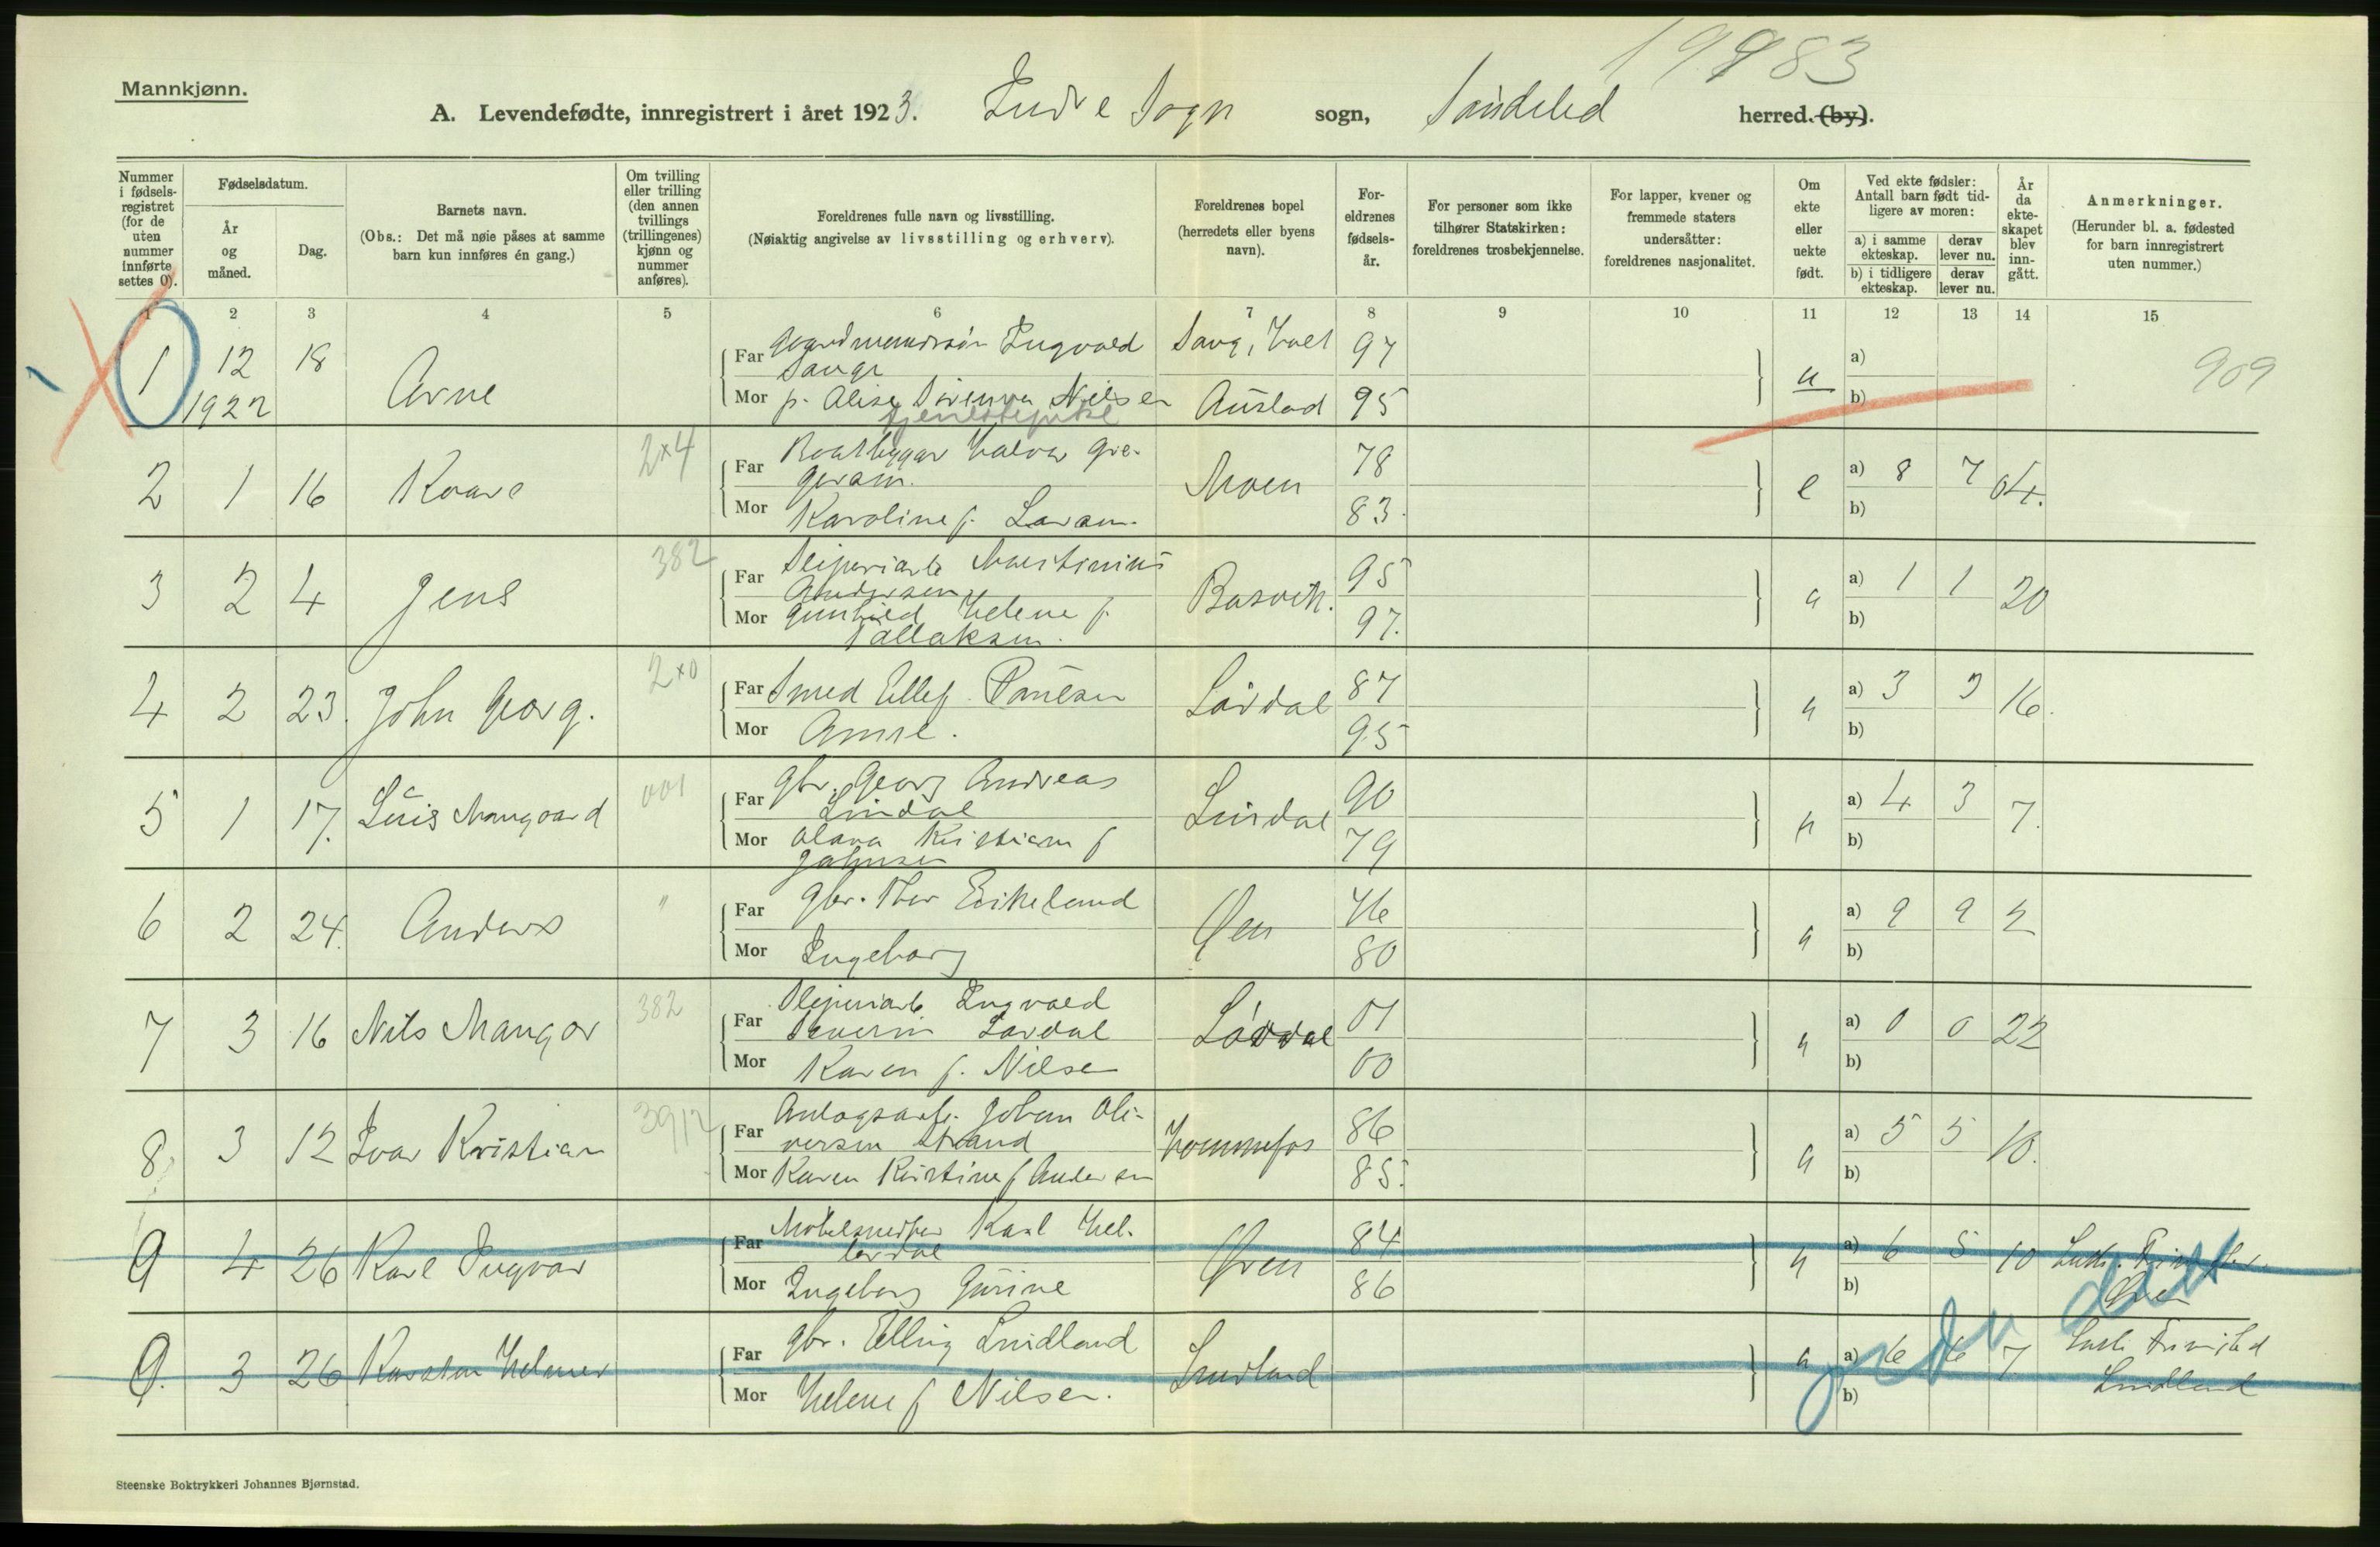 Mannkjønn.
A. Levendefødte, innregistrert i året 1923. Indre Sogn sogn, Søndeled herred. (by).
Nummer i fødsels-registret (for de uten nummer innførte settes 0).
Fødselsdatum.
År og måned.
Dag.
Barnets navn.
(Obs.: Det må nøie påses at samme barn kun innføres én gang.)
Om tvilling eller trilling (den annen tvillings (trillingenes) kjønn og nummer anføres).
Foreldrenes fulle navn og livsstilling.
(Nøiaktig angivelse av livsstilling og erhverv).
Foreldrenes bopel (herredets eller byens navn).
For-eldrenes fødsels-år.
For personer som ikke tilhører Statskirken: foreldrenes trosbekjennelse.
For lapper, kvener og fremmede staters undersåtter: foreldrenes nasjonalitet.
Om ekte eller uekte født.
Ved ekte fødsler: Antall barn født tid-ligere av moren:
a) i samme ekteskap.
derav lever nu.
b) i tidligere ekteskap.
derav lever nu.
År da ekte-skapet blev inn-gått.
Anmerkninger.
(Herunder bl. a. fødested for barn innregistrert uten nummer.)
1 2 3 4 5 6 7 8 9 10 11 12 13 14 15
1 12 1922 18 Arne
Far Ingvald Sange 97
Mor p. Alise Nilsen tjenestepike Auslad 95
u a) b) 909
2 1 16 Kaare 2x4
Far Baatbygger Halvor Gregersen. Moen 78
Mor Karoline f. Larsen. 83.
e a) 8 7 04. b)
3 2 4 Jens 382
Far Sliperiarb. Andersen Basvik. 95
Mor Gunhild Helene f. Tallaksen. 97.
a) 1 1 20 b)
4 2 23. John Georg. 2x0
Far Smed Ellef Paulsen Lövdal 87
Mor Anne. 95
a) 3 3 16. b)
5 1 17. Luis Mangaard 001
Far gbr. Georg Andreas Lindal Lindal 90
Mor Olava Kristiane f Johnsen 79
a) 4 3 7. b)
6 2 24. Anders "
Far gbr. Ther Eikeland Øen 76
Mor Ingeborg 80
a) 9 9 2 b)
7 3 16 Nils Mangor 382
Far Sliperiarb Ingvald Severin Lövdal Lövdal 01
Mor Karen f. Nilsen 00
a) 0 0 22 b)
8 3 12 Ivar Kristian 3912
Far Anlagsarb. Johan Oliversen Strand Hommefos 86
Mor Karen Kristine f Andersen 85.
a) 5 5 10. b)
0 4 26 Karl Ingvar
Far Karl Øren 84
Mor Ingeborg Gurine 86
a) 6 5 10 b)
0. 3 26 Karsten Helmer
Far gbr. Elling Lindland Lindland
Mor Helene f Nilsen.
a) 6 6 7 b) Lindland
Steenske Boktrykkeri Johannes Bjørnstad.